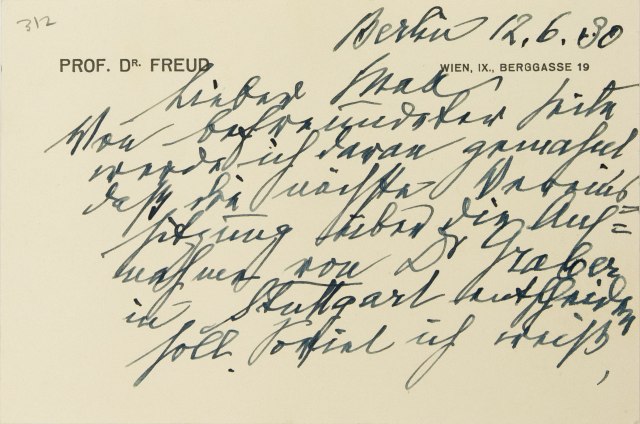 312
Berlin 12.6.30
PROF. DR. FREUD
WIEN, IX., BERGGASSE 19
Lieber Max
Von befreundeter Seite
werde ich daran gemahnt
daß die nächste Vereins=
sitzung über die Auf=
nahme von Dr Graber
in Stuttgart entscheiden
soll. Soviel ich weiß,